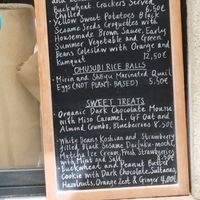 Buckwheat Crackers Served
Chilled 6.50€
Yellow Sweet Potatoes Black
Sesame Seeds Croquettes with
Homemade Brown Sauce, Early
Summer Vegetable and Green
Beans Coleslaw with Orange and
Kumquat 12,50€
OHUSUBI RICE BALLS
Mirin and Shoyu Marinated Quail
Eggs (NOT PLANT-BASED) 5.50€
SWEET TREATS
Organic Dark Chocolate Mousse
with Miso Caramel, GF Oat and
Almond Crumbs, Blueberries
White Beans Koshian and Strawberry
filled, Black Sesame Daifuku-mochi
Matcha Ice Cream, Fresh Strawberries
with Mint and Salt 8.50€
Buckwheat and Peanut Butter
with Dark Chocolate, Sultanas,
Hazelnuts, Orange Zest & Ginger 4.00€